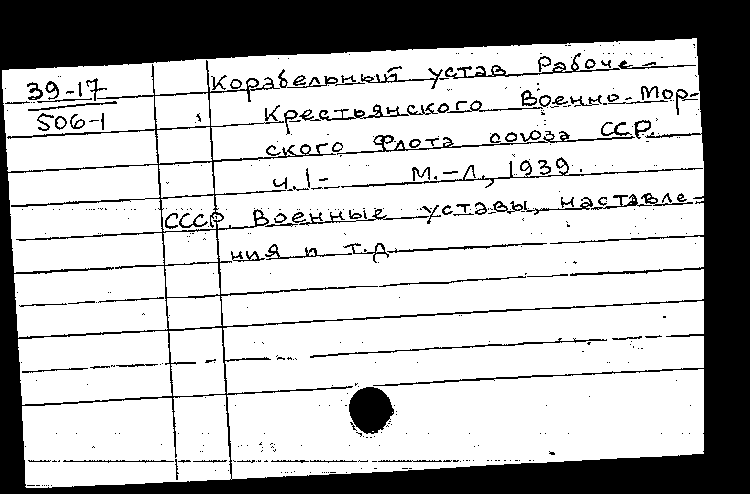 39-17
506-1
Корабельный устав Рабоче-
Крестьянского Военно-Мор-
ского Флота союза ССР.
ч.1- М.-Л., 1939.
СССР. Военные уставы, наставле-
ния и т.д.